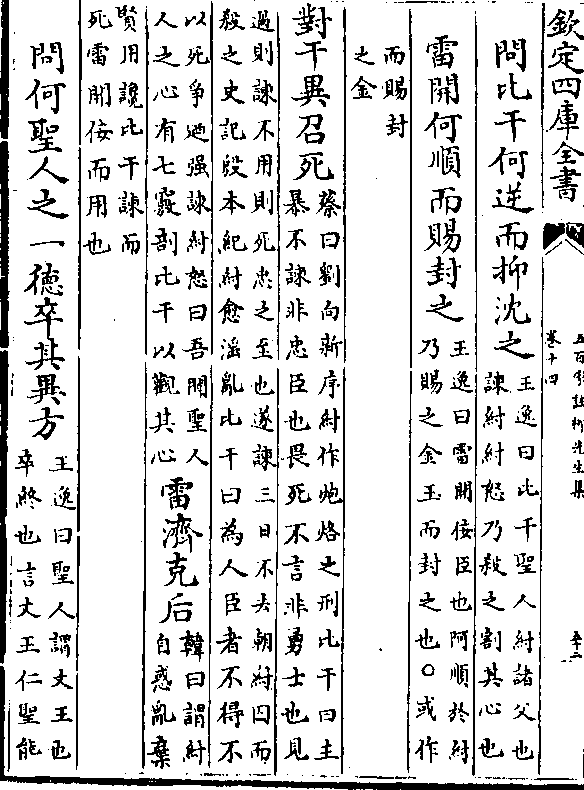 欽定四庫全書
五百家註柳先生集
卷十四
問比干何逆而抑沈之
王逸曰比干聖人紂諸父也
諫紂紂怒乃殺之割其心也
雷開何順而賜封之
王逸曰雷開佞臣也阿順於紂
乃賜之金玉而封之也○或作
而賜封
之金
對干異召死
蔡曰劉向新序紂作炮烙之刑比干曰主
暴不諫非忠臣也畏死不言非勇士也見
過則諫不用則死忠之至也遂諫三日不去朝紂囚而
殺之史記殷本紀紂愈淫亂比干曰為人臣者不得不
以死争廼强諫紂怒曰吾聞聖人
人之心有七竅剖比干以觀其心
雷濟克后
韓曰謂紂
自惑亂棄
賢用讒比干諫而
死雷開佞而用也
問何聖人之一德卒其異方
王逸曰聖人謂文王也
卒終也言文王仁聖能